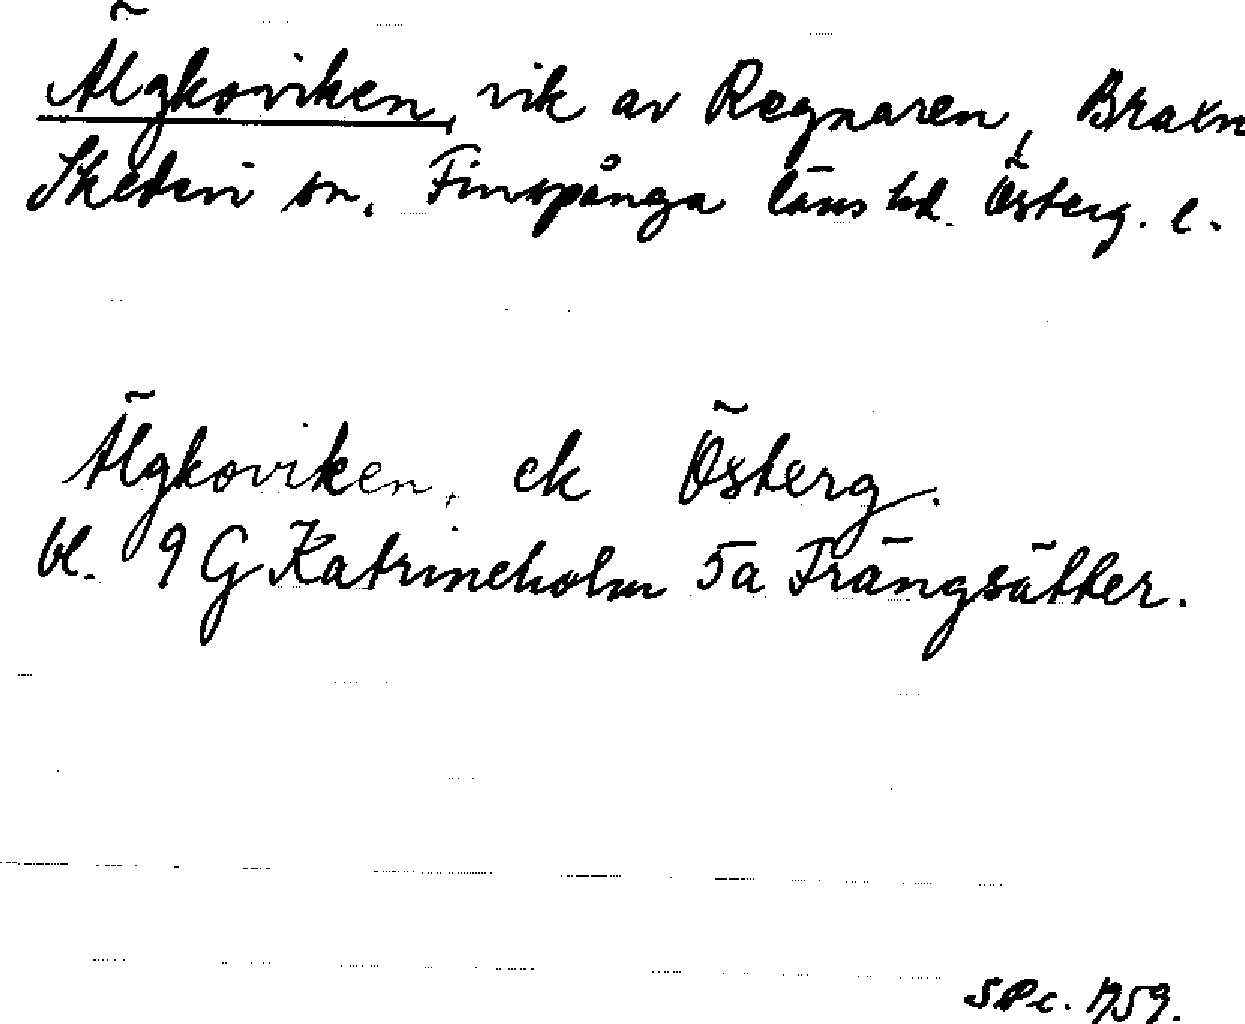 Älgkoviken, vik av Regnaren,
Skedevi sn. Finspånga läns hd. Österg. l.
Älgkoviken, ek Österg.
bl. 9 G Katrineholm 5a Frängsätter.
1959.